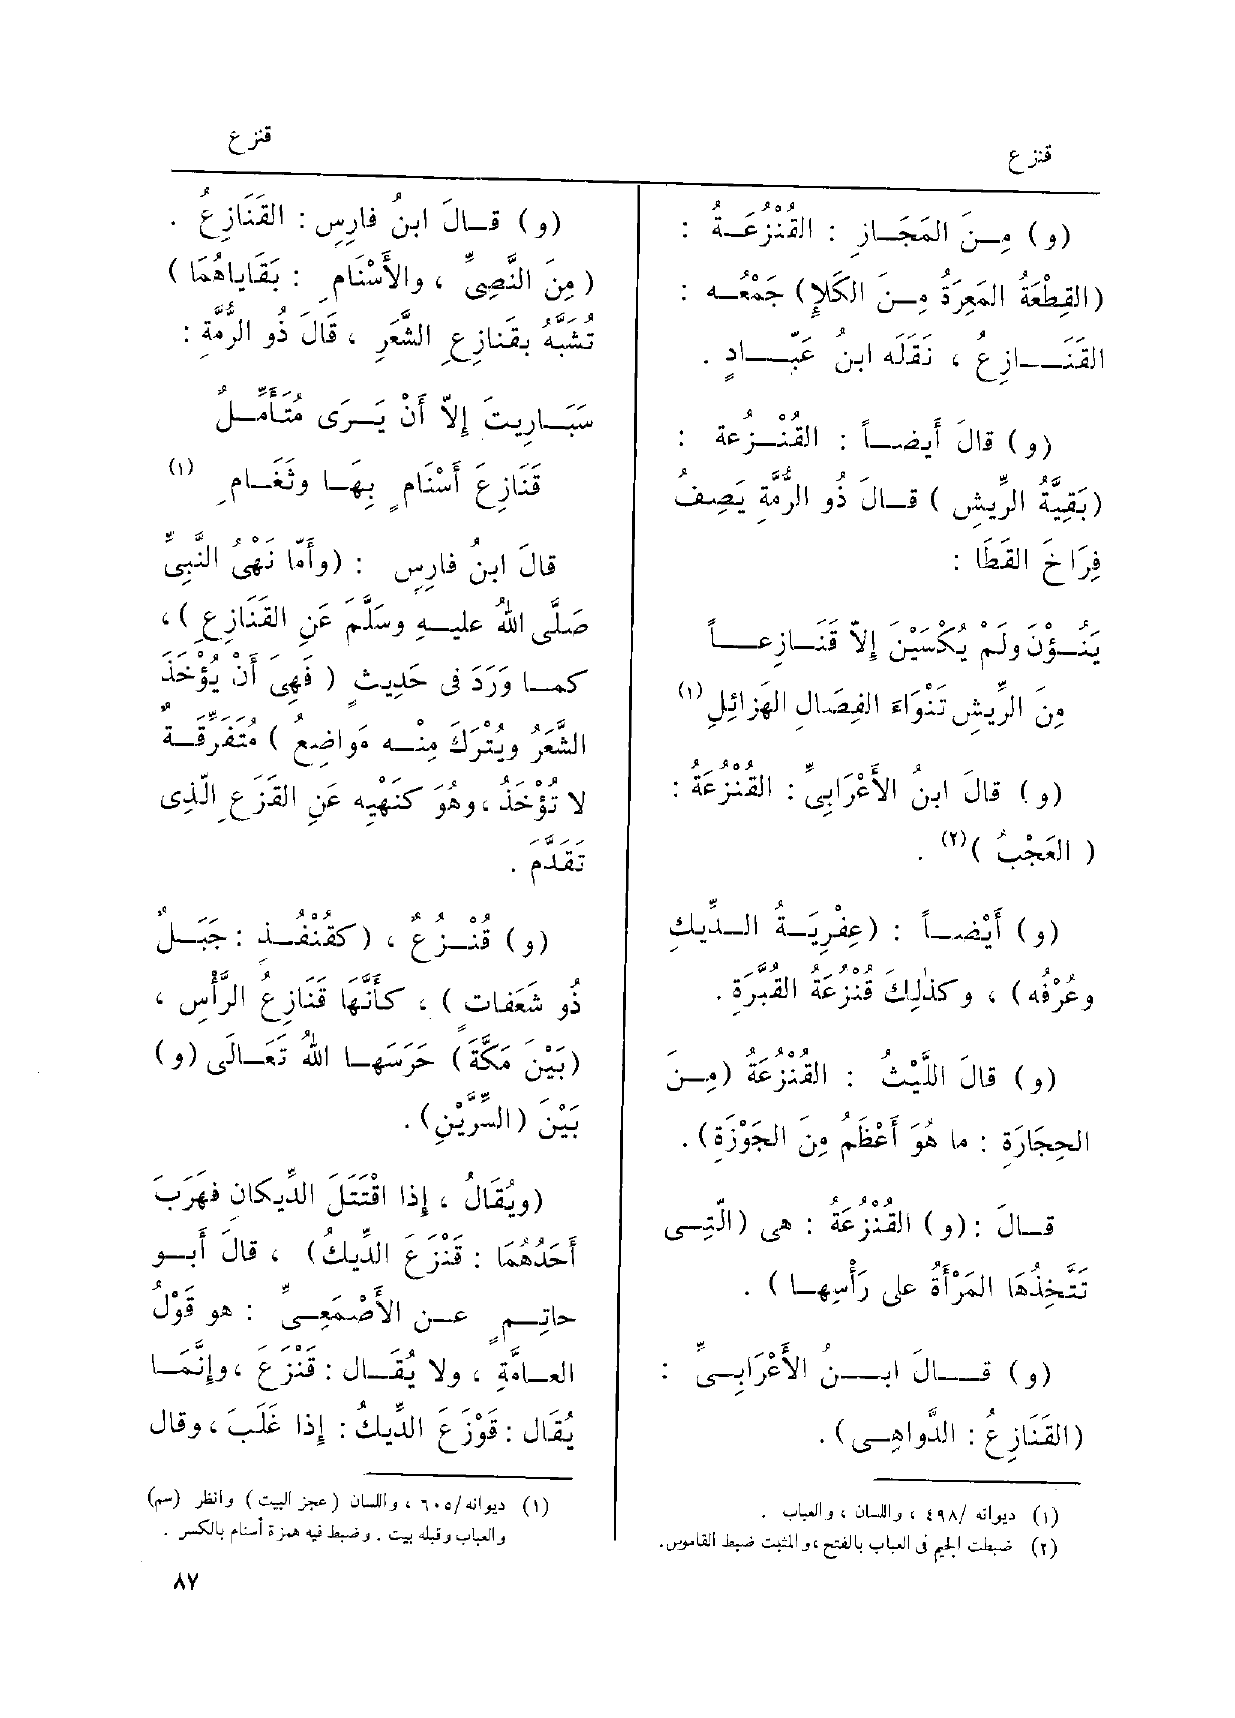 قنزع
(و) مِـنَ المَجَـازِ : القُنْزُعَـةُ :
(القِطْعَةُ المَعِرَةُ مِـنَ الكَلإِ) جَمْعُـه :
القَنَـازِعُ ، نَقَلَه ابنُ عَبَّـادٍ .
(و) قالَ أَيضـاً : القُنْـزُعة :
(بَقِيَّةُ الرِّيشِ) قـالَ ذُو الرُّمَّةِ يَصِفُ
فِرَاخَ القَطَا :
يَنُـؤْنَ ولَمْ يُكْسَيْنَ إِلاّ قَنَـازِعـاً
مِنَ الرِّيشِ تَنْوَاءَ الفِصَالِ الهَزَائِلِ (١)
(و) قالَ ابنُ الأَعْرَابِىِّ : القُنْزُعَةُ :
( العَجْبُ )(٢) .
(و) أَيْضـاً : (عِفْرِيَـةُ الـدِّيكِ
وعُرْفُه) ، وكذٰلِكَ قُنْزُعَةُ القُبَّرَةِ .
(و) قالَ اللَّيْثُ : القُنْزُعَةُ (مِـنَ
الحِجَارَةِ : ما هُوَ أَعْظَمُ مِنَ الجَوْزَةِ) .
قـالَ : (و) القُنْزُعَةُ : هى (الَّتِـى
تَتَّخِذُهَا المَرْأَةُ على رَأْسِهـا ) .
(و) قـالَ ابـنُ الأَعْرَابِـىِّ :
(القَنَازِعُ : الدَّواهِـى) .
(١) ديوانه /٤٩٨ ، واللسان ، والعباب .
(٢) ضبطت الجيم فى العباب بالفتح ، والمثبت ضبط القاموس .
قنزع
(و) قـالَ ابنُ فارِسٍ : القَنَازِعُ .
( مِنَ النَّصِىِّ ، والأَسْنَامِ : بَقَاياهُمَا )
تُشَبَّهُ بقَنازِعِ الشَّعَرِ ، قَالَ ذُو الرُّمَّةِ :
سَبَـارِيتَ إِلاّ أَنْ يَـرَى مُتَأَمِّـلٌ
قَنَازِعَ أَسْنَامٍ بِهَـا وثَغَـامِ (١)
قالَ ابنُ فارِسٍ : (وأَمّا نَهْىُ النَّبِىِّ
صَلَّى اللهُ عليـهِ وسَلَّمَ عَنِ القَنَازِعِ) ،
كمـا وَرَدَ فى حَدِيثٍ ( فَهِىَ أَنْ يُؤْخَذَ
الشَّعَرُ ويُتْرَكَ مِنْـه مَواضِعُ ) مُتَفَرِّقَـةٌ
لا تُؤْخَذُ ، وهُوَ كنَهْيِه عَنِ القَزَعِ الَّذِى
تَقَدَّمَ .
(و) قُنْـزُعٌ ، (كقُنْفُـذٍ : جَبَـلٌ
ذُو شَعَفاتٍ ) ، كأَنَّهَا قَنَازِعُ الرَّأْسِ ،
(بَيْنَ مَكَّةَ) حَرَسَهـا اللهُ تَعَـالَى (و)
بَيْنَ (السِّرَّيْنِ) .
(ويُقَالُ ، إِذا اقْتَتَلَ الدِّيكانِ فهَرَبَ
أَحَدُهُمَا : قَنْزَعَ الدِّيكُ) ، قالَ أَبـو
حاتِـمٍ عـن الأَصْمَعِـىِّ : هو قَوْلُ
العـامَّةِ ، ولا يُقَـال : قَنْزَعَ ، وإِنَّمَـا
يُقَال : قَوْزَعَ الدِّيكُ : إِذا غَلَبَ ، وقال
(١) ديوانه/٦٠٥ ، واللسان (عجز البيت) وانظر (سم)
والعباب وقبله بيت . وضبط فيه همزة أسنام بالكسر .
٨٧